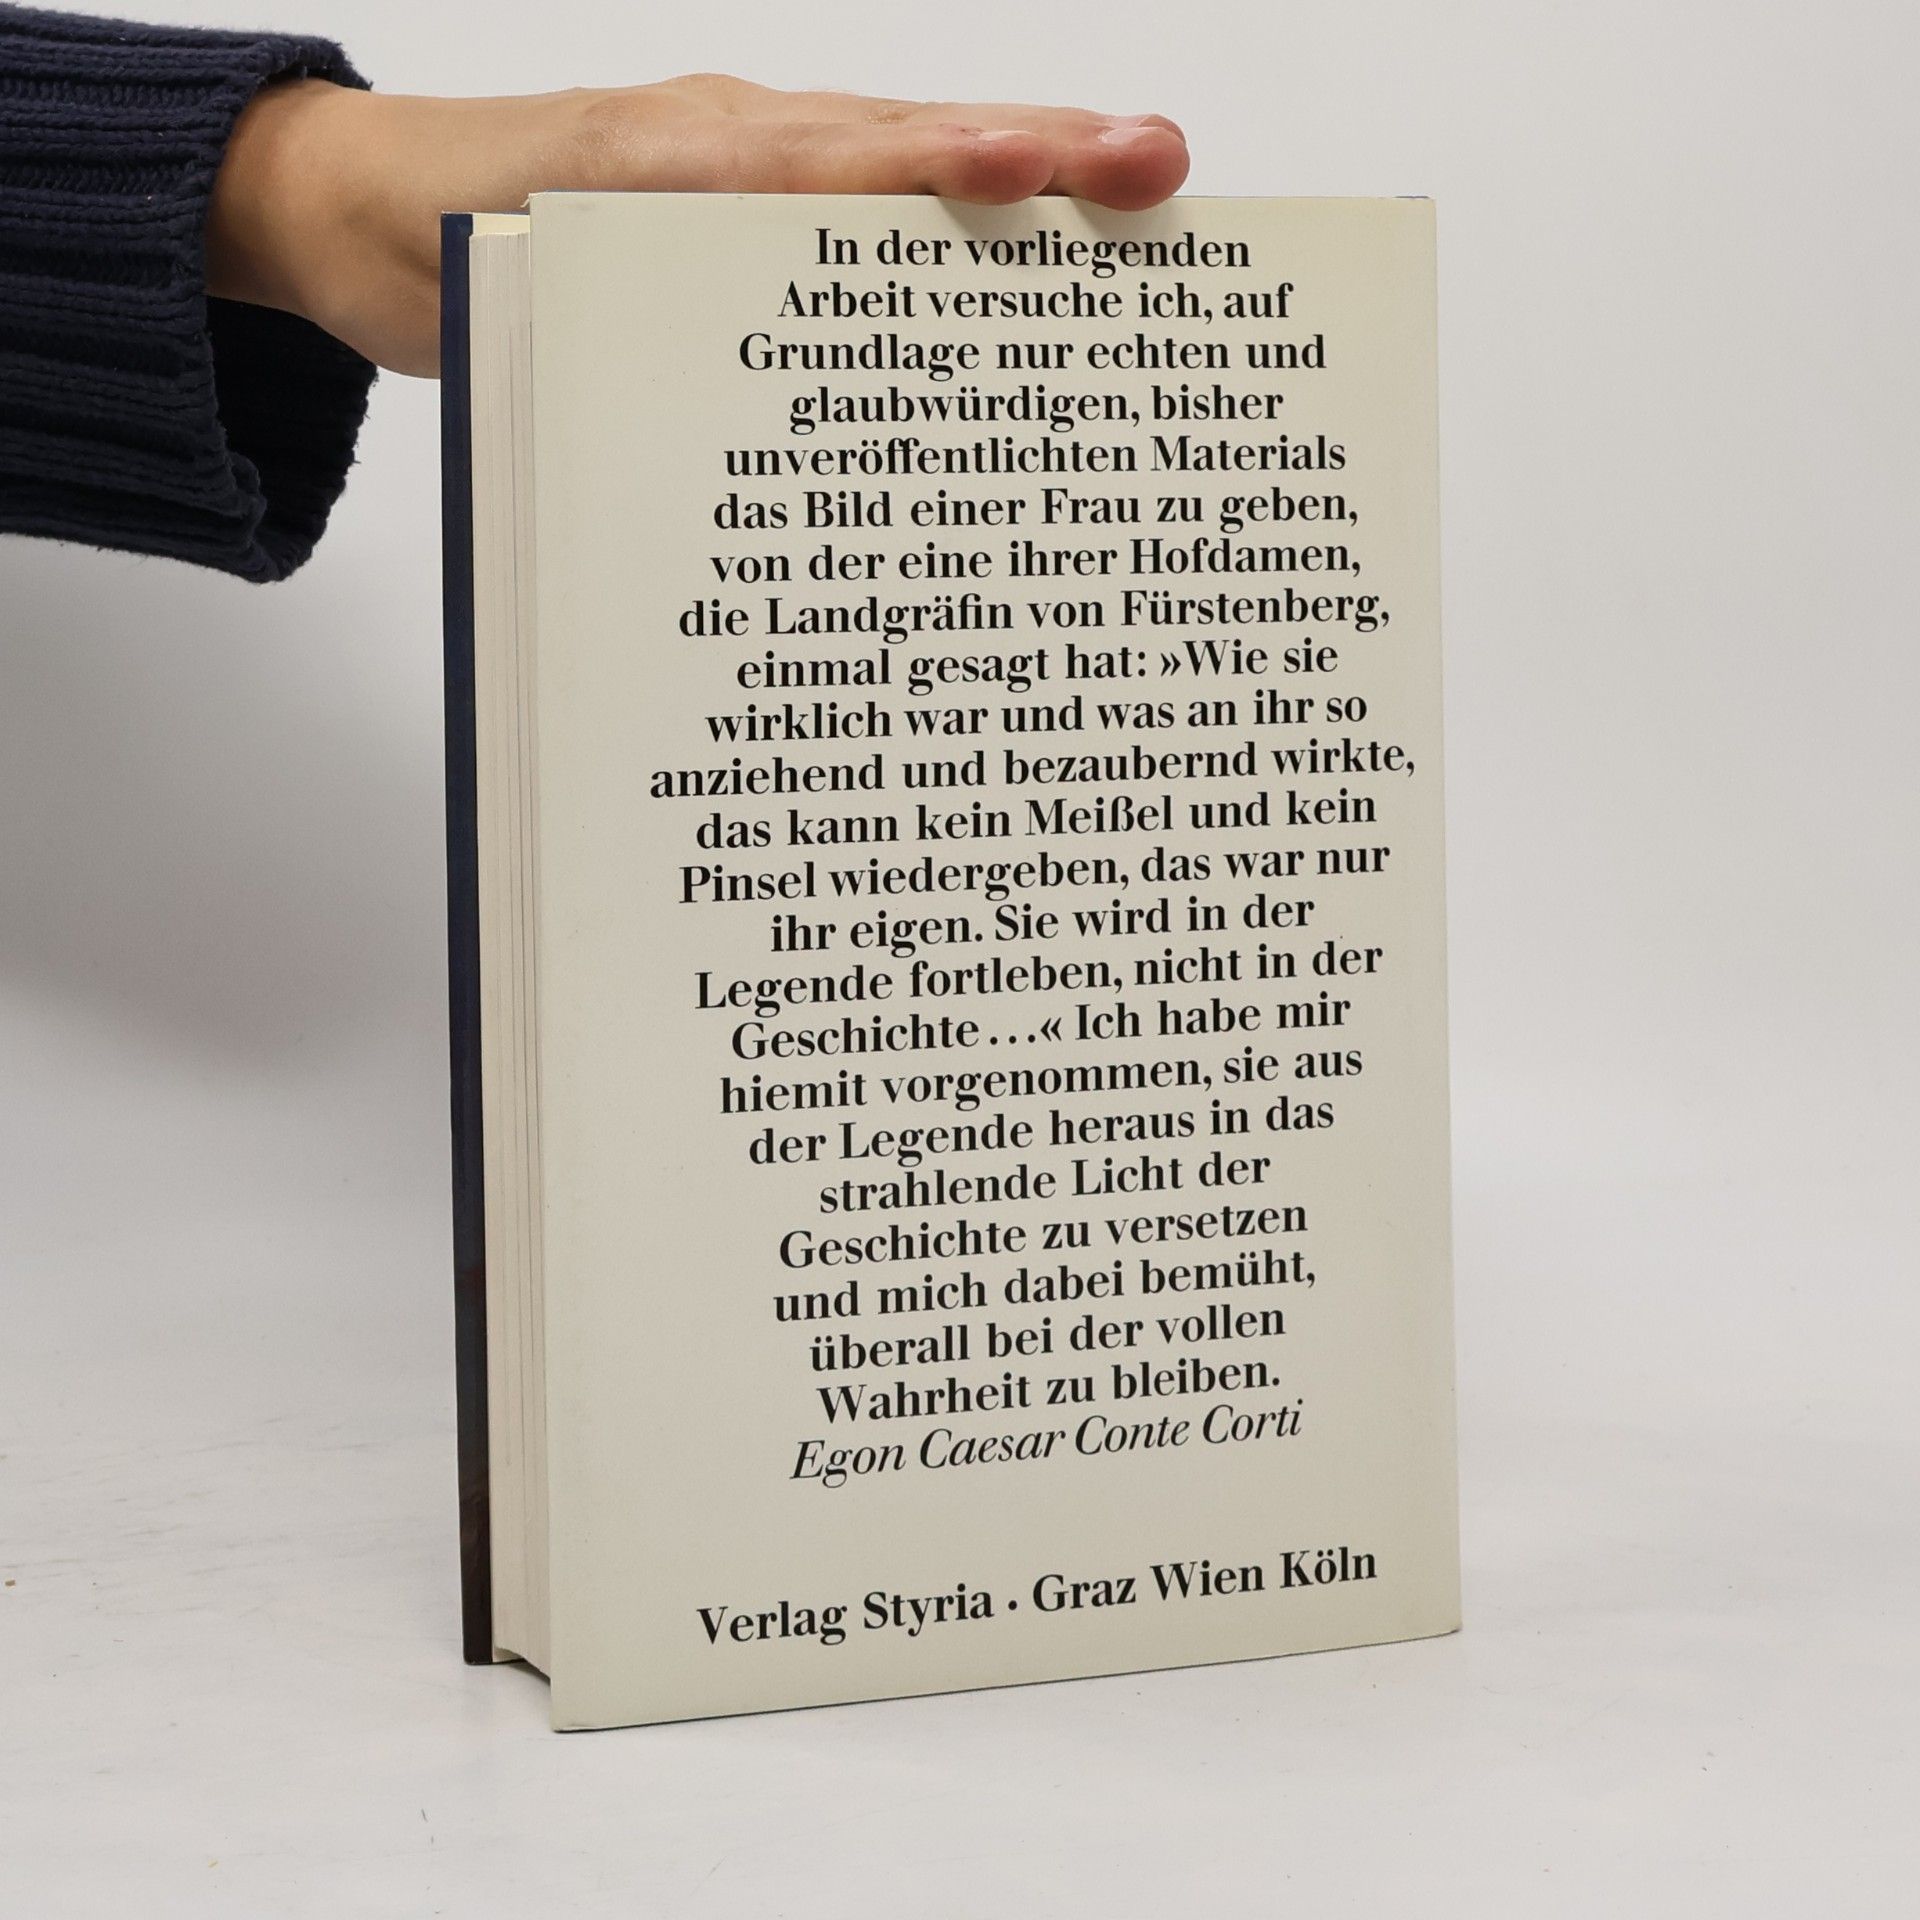 In der vorliegenden
Arbeit versuche ich, auf
Grundlage nur echten und
glaubwürdigen, bisher
unveröffentlichten Materials
das Bild einer Frau zu geben,
von der eine ihrer Hofdamen,
die Landgräfin von Fürstenberg,
einmal gesagt hat: »Wie sie
wirklich war und was an ihr so
anziehend und bezaubernd wirkte,
das kann kein Meißel und kein
Pinsel wiedergeben, das war nur
ihr eigen. Sie wird in der
Legende fortleben, nicht in der
Geschichte ...« Ich habe mir
hiemit vorgenommen, sie aus
der Legende heraus in das
strahlende Licht der
Geschichte zu versetzen
und mich dabei bemüht,
überall bei der vollen
Wahrheit zu bleiben.
Egon Caesar Conte Corti
Verlag Styria · Graz Wien Köln